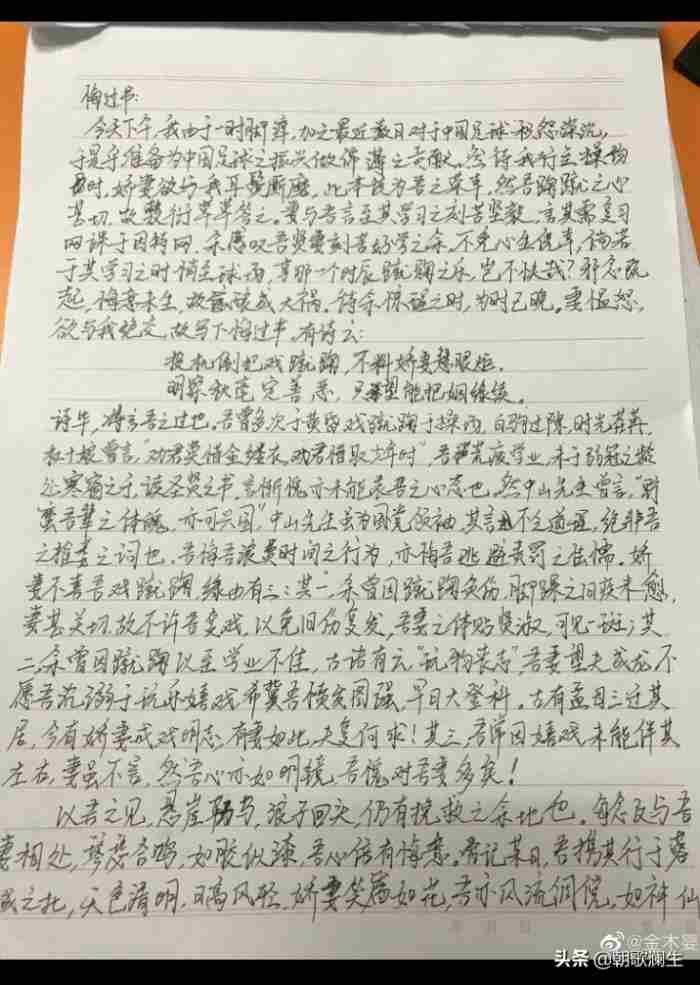 悔过书:
今天下午,我由于一时脚痒,加之最近数日对于中国足球积怨深沉,
于是乎准备为中国足球之振兴做绵薄之贡献。然待我行至操场
时,娇妻欲与我耳鬓厮磨,此本该为吾之荣幸,然吾蹴鞠之心
甚切,故敷衍草草答之。妻与吾言至其学习之刻苦坚毅,言其需复习
网课于因特网,余感叹吾贤妻刻苦好学之余,不免心生侥幸,倘若
于其学习之时俏至球场,享那一个时辰蹴鞠之乐,岂不快哉?邪念既
起,悔意未生,故酿该成大祸。待余惊醒之时,为时已晚。妻愠怒,
欲与我绝交,故写下悔过书。有诗云:
投机倒把戏蹴鞠,不料娇妻慧眼炬。
明察秋毫完善恶,只望能把姻缘续。
诗毕,将言吾之过也。吾曾多次于黄昏戏蹴鞠于操场,白驹过隙,时光荏苒,
杜十娘曾言,"劝君莫惜金缕衣,劝君惜取少年时",吾荒废学业,未于弱冠之龄
处寒窗之于,读圣贤之书,言惭愧亦未能表吾之心志也。然中山先生曾言,"野
蛮吾辈之体魄,亦可兴国",中山先生虽为国党领袖,其言不乏道理,绝非吾
之推委之词也。吾悔吾浪费时间之行为,亦悔吾逃避责罚之怯懦。娇
妻不喜吾戏蹴鞠,缘由有三:其一,余曾因蹴鞠负伤,脚踝之间致未愈,
妻甚关切,故不许吾变戏,以免旧伤复发,吾妻之体贴贤淑,可见一斑;其
二,余曾因蹴鞠以至学业不佳,古语有云"玩物丧志",吾妻望夫成龙,不
愿吾沉溺于玩乐嬉戏,希冀吾愤发图强,早日大登科。古有孟母三迁其
居,今有娇妻戒戏明志,有妻如此,夫复何求!其三,吾常因嬉戏未能伴其
左右,妻虽不言,然吾心亦如明镜,吾愧对吾妻多矣!
以吾之见,悬崖勒马,浪子回头,仍有挽救之余地也。每念及与吾
妻相处,琴瑟合鸣,如胶似漆,吾心倍有悔意。吾记某日,吾携其行于蓉
城之北,天色清明,日高风轻,娇妻笑靥如花,吾亦风流倜傥,如神仙
@金木婴
头条 @朝歌澜生